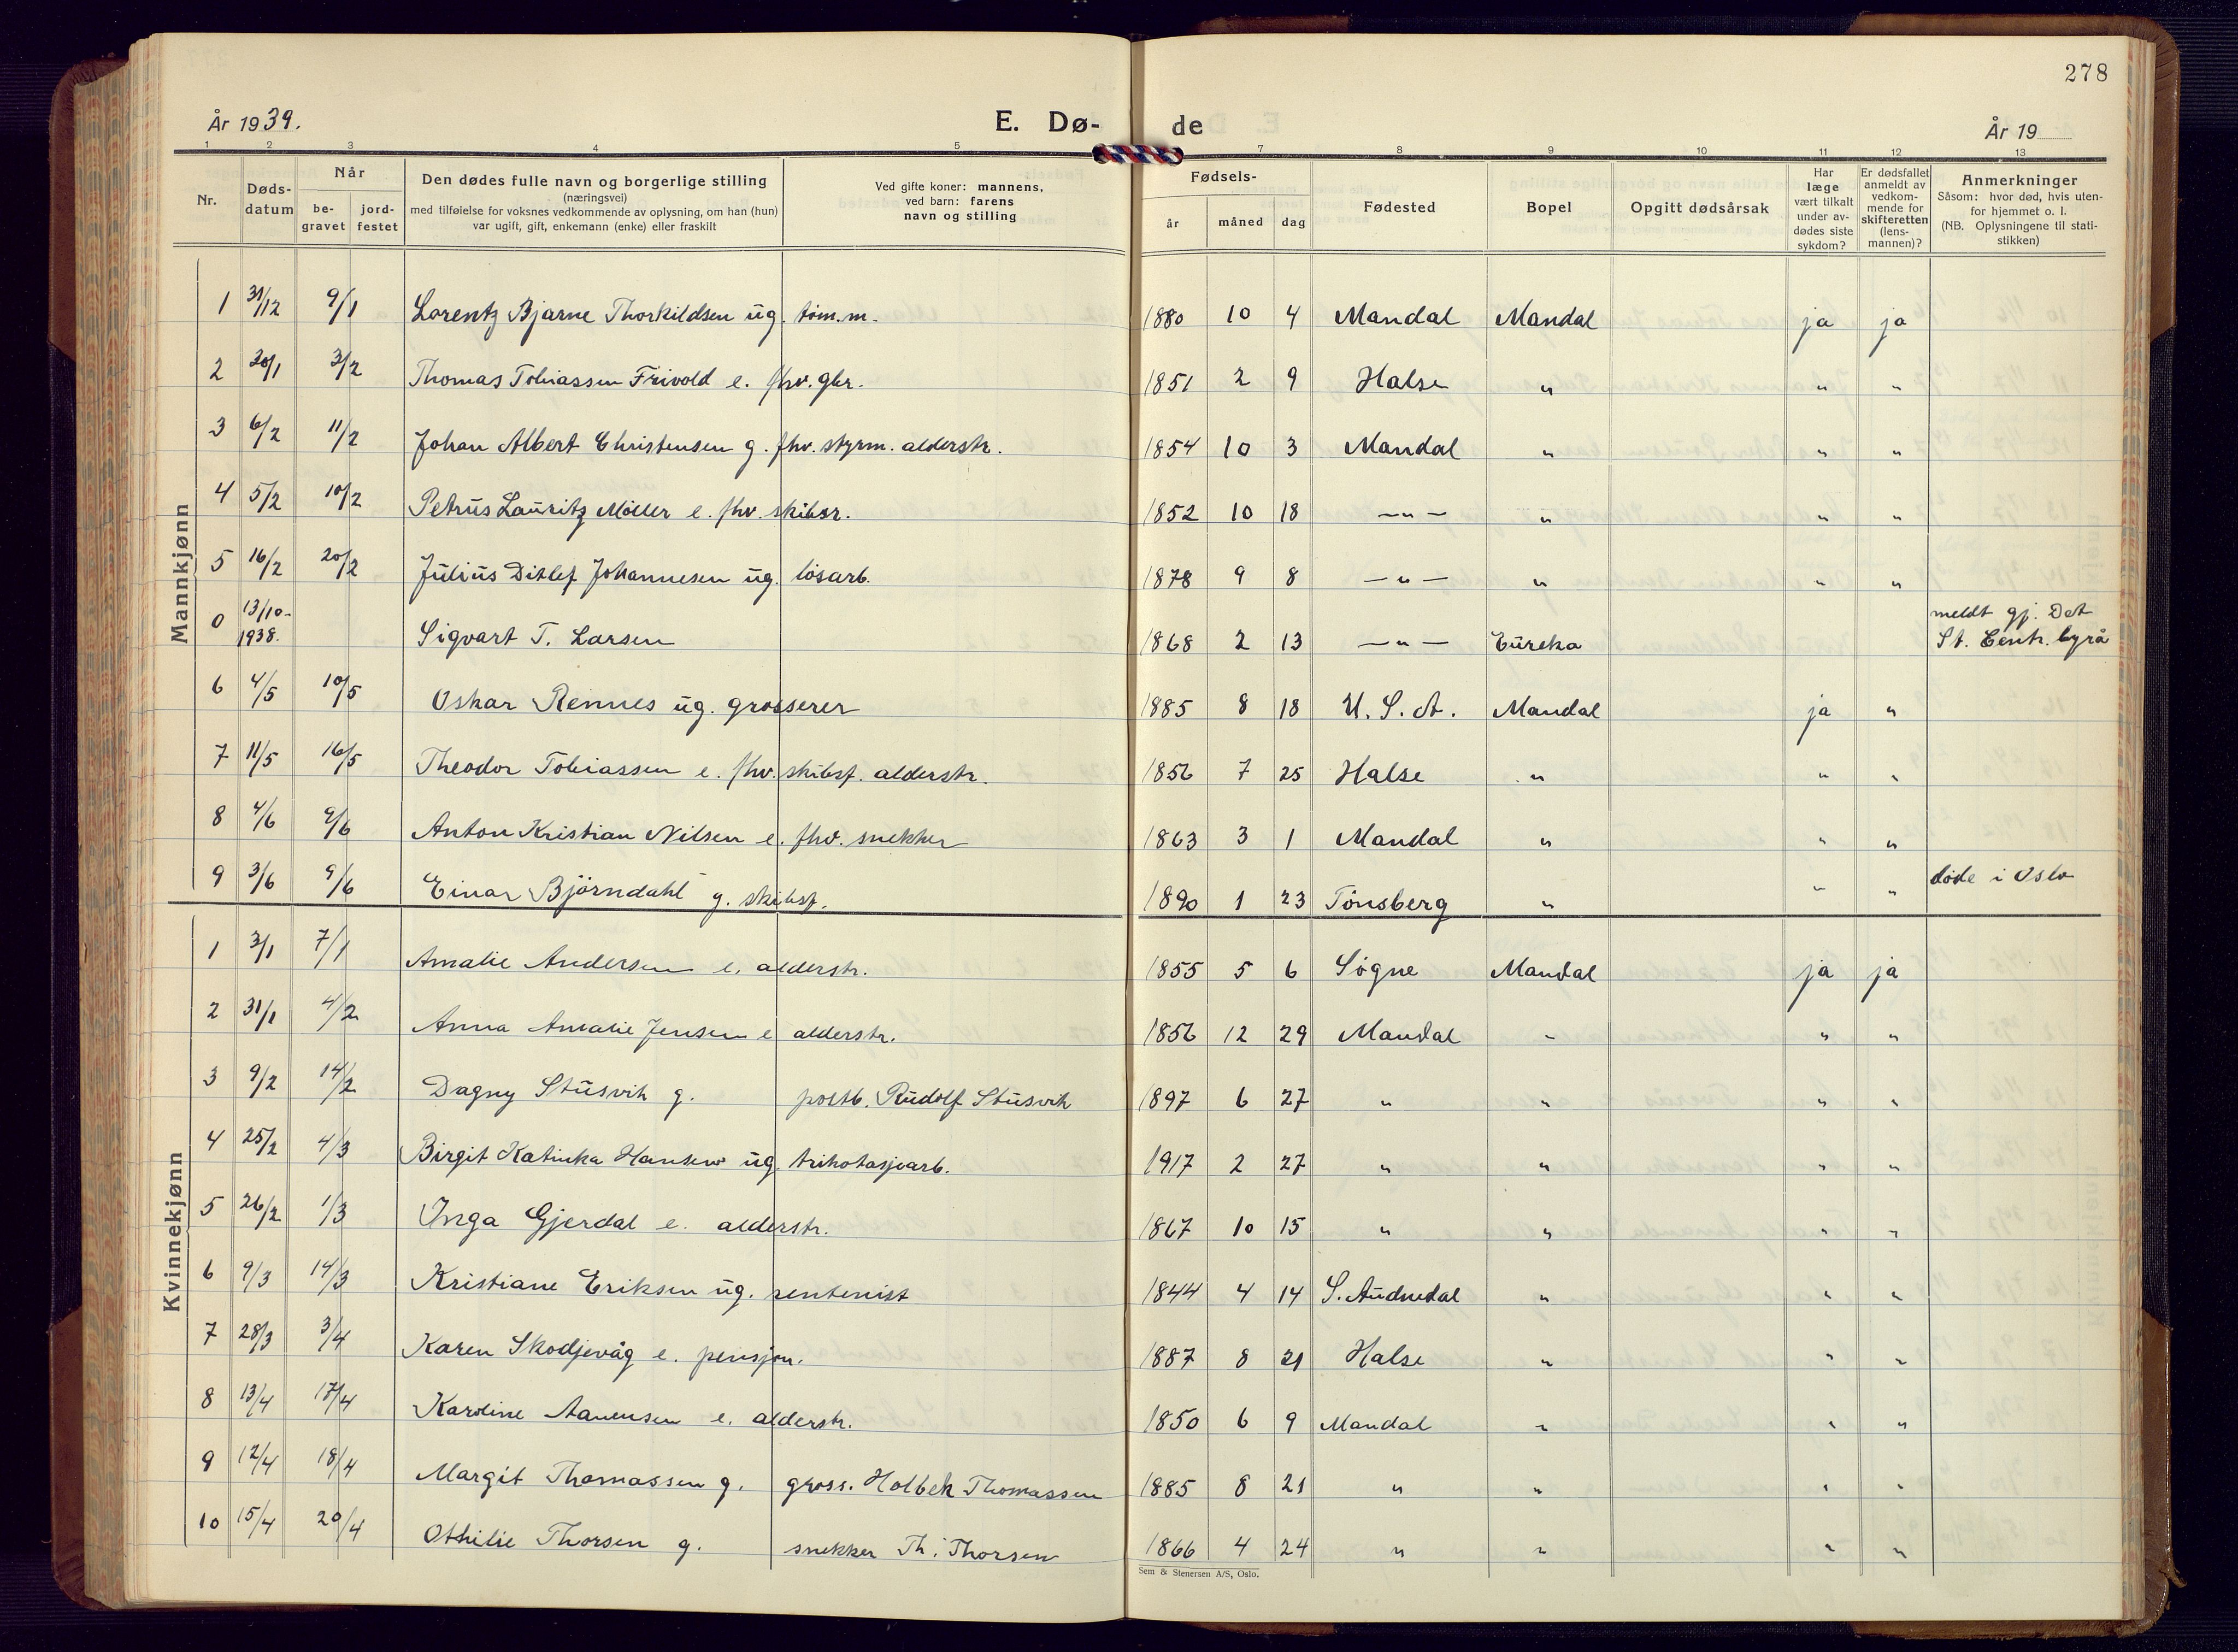 278
År 1939.
E. Dø-
de
År 19
1 2 3 4 5 7 8 9 10 11 12 13
Nr.
Døds-
datum
Når
be-
gravet
jord-
festet
Den dødes fulle navn og borgerlige stilling
(næringsvei)
med tilføielse for voksnes vedkommende av oplysning, om han (hun)
var ugift, gift, enkemann (enke) eller fraskilt
Ved gifte koner: mannens,
ved barn: farens
navn og stilling
Fødsels-
år
måned
dag
Fødested
Bopel
Opgitt dødsårsak
Har
læge
vært tilkalt
under av-
dødes siste
sykdom?
Er dødsfallet
anmeldt av
vedkom-
mende for
skifteretten
(lens-
mannen)?
Anmerkninger
Såsom: hvor død, hvis uten-
for hjemmet o. l.
(NB. Oplysningene til stati-
stikken)
Mannkjønn
1 31/12 9/1 Lorentz Bjarne Thorkildsen ug. tøm.m. 1880 10 4 Mandal Mandal ja ja
2 30/1 3/2 Thomas Tobiassen Frivold e. fhv. gbr. 1851 2 9 Halse " " "
3 6/2 11/2 Johan Albert Christensen g. fhv. styrm. alderstr. 1854 10 3 Mandal " " "
4 5/2 10/2 Petrus Lauritz Møller e. fhv. skibsr. 1852 10 18 —"— " " "
5 16/2 20/2 Julius Ditlef Johannesen ug. løsarb. 1878 9 8 —"— " " "
0 13/10- 1938. Sigvart T. Larsen 1868 2 13 —"— Eureka meldt gj. Det
St. Centr. byrå
6 4/5 10/5 Oskar Rennes ug. grosserer 1885 8 18 U. S. A. Mandal ja "
7 11/5 16/5 Theodor Tobiassen e. fhv. skibsf. alderstr. 1856 7 25 Halse " " "
8 4/6 9/6 Anton Kristian Nilsen e. fhv. snekker 1863 3 1 Mandal " " "
9 3/6 9/6 Einar Björndahl g. skibsf. 1890 1 23 Tönsberg " " " døde i Oslo
Kvinnekjønn
1 3/1 7/1 Amalie Andersen e. alderstr. 1855 5 6 Søgne Mandal ja ja
2 31/1 4/2 Anna Amalie Jensen e alderstr. 1856 12 29 Mandal " " "
3 9/2 14/2 Dagny Stusvik g. postb. Rudolf Stusvik 1897 6 27 " " " "
4 25/2 4/3 Birgit Katinka Hansen ug. trikotasjearb. 1917 2 27 " " " "
5 26/2 1/3 Inga Gjerdal e. alderstr. 1867 10 15 " " " "
6 9/3 14/3 Kristiane Eriksen ug. rentenist 1844 4 14 S. Audnedal " " "
7 28/3 3/4 Karen Skodjevåg e. pensjon. 1887 8 21 Halse " " "
8 13/4 17/4 Karoline Aanensen e. alderstr. 1850 6 9 Mandal " " "
9 12/4 18/4 Margit Thomassen g. gross. Holbek Thomassen 1885 8 21 " " " "
10 15/4 20/4 Othilie Thorsen g. snekker Th. Thorsen 1866 4 24 " " " "
Sem & Stenersen A/S, Oslo.